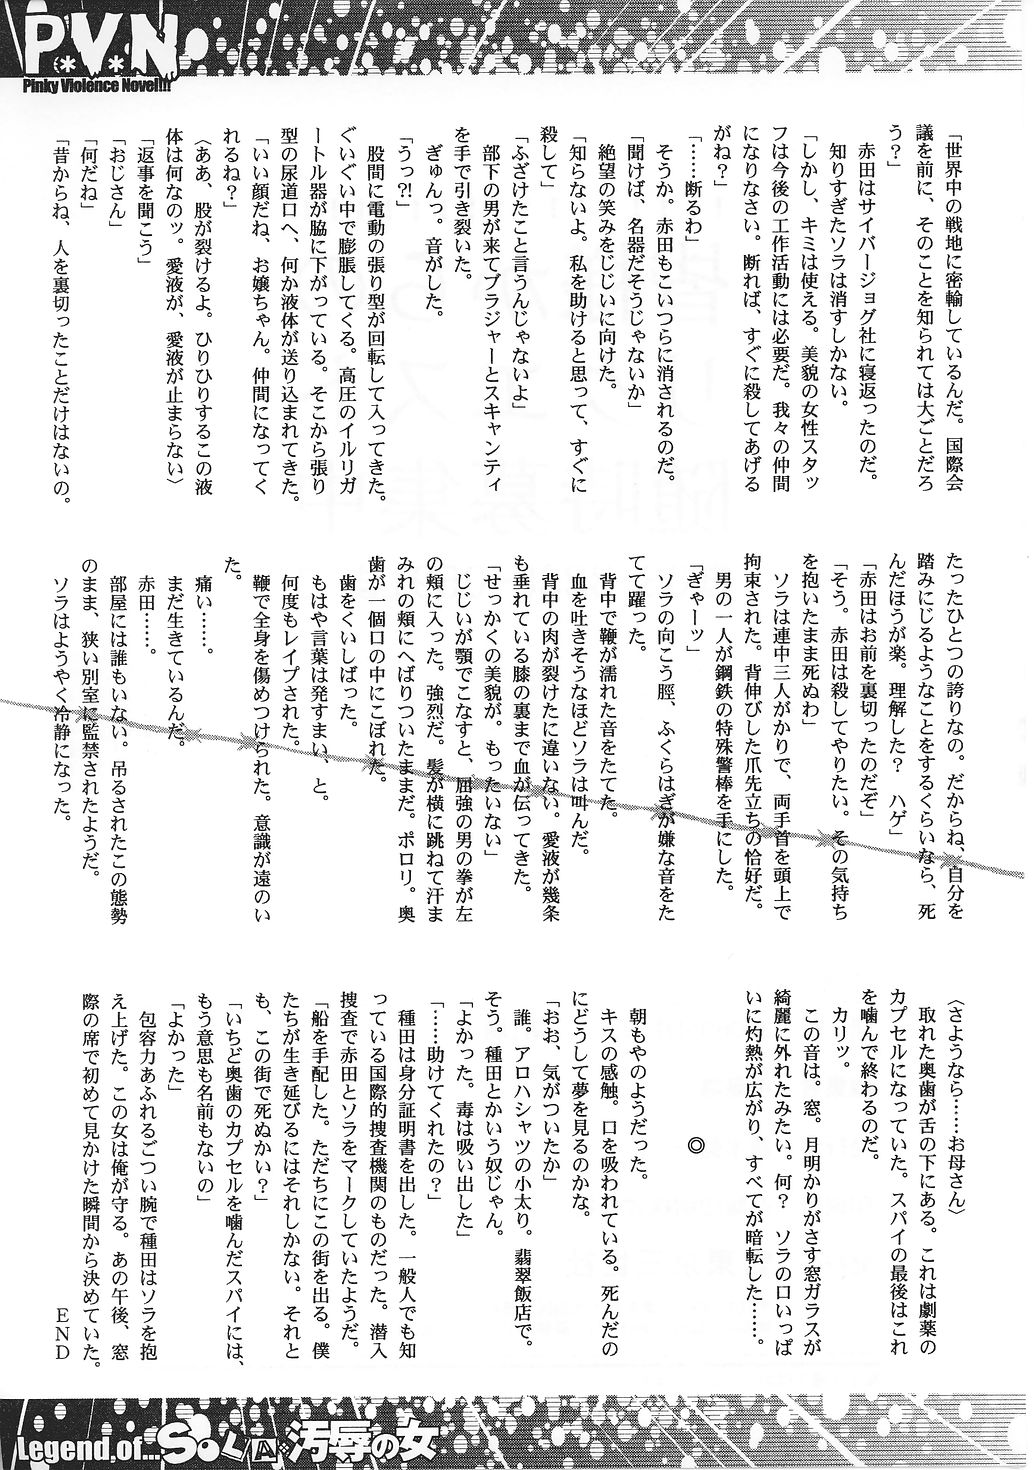 P*V*N
Pinky Violence Novel!!!
「世界中の戦地に密輸しているんだ。国際会
議を前に、そのことを知られては大ごとだろ
う？」
赤田はサイバージョグ社に寝返ったのだ。
知りすぎたソラは消すしかない。
「しかし、キミは使える。美貌の女性スタッ
フは今後の工作活動には必要だ。我々の仲間
になりなさい。断れば、すぐに殺してあげる
がね？」
「……断るわ」
そうか。赤田もこいつらに消されるのだ。
「聞けば、名器だそうじゃないか」
絶望の笑みをじじいに向けた。
「知らないよ。私を助けると思って、すぐに
殺して」
「ふざけたこと言うんじゃないよ」
部下の男が来てブラジャーとスキャンティ
を手で引き裂いた。
ぎゅんっ。音がした。
「うっ?!」
股間に電動の張り型が回転して入ってきた。
ぐいぐい中で膨脹してくる。高圧のイルリガ
ートル器が脇に下がっている。そこから張り
型の尿道口へ、何か液体が送り込まれてきた。
「いい顔だね、お嬢ちゃん。仲間になってく
れるね？」
〈ああ、股が裂けるよ。ひりひりするこの液
体は何なのッ。愛液が、愛液が止まらない〉
「返事を聞こう」
「おじさん」
「何だね」
「昔からね、人を裏切ったことだけはないの。
たったひとつの誇りなの。だからね、自分を
踏みにじるようなことをするくらいなら、死
んだほうが楽。理解した？　ハゲ」
「赤田はお前を裏切ったのだぞ」
「そう。赤田は殺してやりたい。その気持ち
を抱いたまま死ぬわ」
ソラは連中三人がかりで、両手首を頭上で
拘束された。背伸びした爪先立ちの恰好だ。
男の一人が鋼鉄の特殊警棒を手にした。
「ぎゃーッ」
ソラの向こう脛、ふくらはぎが嫌な音をた
てて躍った。
背中で鞭が濡れた音をたてた。
血を吐きそうなほどソラは叫んだ。
背中の肉が裂けたに違いない。愛液が幾条
も垂れている膝の裏まで血が伝ってきた。
「せっかくの美貌が、もったいない」
じじいが顎でこなすと、屈強の男の拳が左
の頬に入った。強烈だ。髪が横に跳ねて汗ま
みれの頬にへばりついたままだ。ポロリ。奥
歯が一個口の中にこぼれた。
歯をくいしばった。
もはや言葉は発すまい、と。
何度もレイプされた。
鞭で全身を傷めつけられた。意識が遠のい
た。
痛い……。
まだ生きているんだ。
赤田……。
部屋には誰もいない。吊るされたこの態勢
のまま、狭い別室に監禁されたようだ。
ソラはようやく冷静になった。
〈さようなら……お母さん〉
取れた奥歯が舌の下にある。これは劇薬の
カプセルになっていた。スパイの最後はこれ
を噛んで終わるのだ。
カリッ。
この音は。窓。月明かりがさす窓ガラスが
綺麗に外れたみたい。何？　ソラの口いっぱ
いに灼熱が広がり、すべてが暗転した……。
◎
朝もやのようだった。
キスの感触。口を吸われている。死んだの
にどうして夢を見るのかな。
「おお、気がついたか」
誰。アロハシャツの小太り。翡翠飯店で。
そう。種田とかいう奴じゃん。
「よかった。毒は吸い出した」
「……助けてくれたの？」
種田は身分証明書を出した。一般人でも知
っている国際的捜査機関のものだった。潜入
捜査で赤田とソラをマークしていたようだ。
「船を手配した。ただちにこの街を出る。僕
たちが生き延びるにはそれしかない。それと
も、この街で死ぬかい？」
「いちど奥歯のカプセルを噛んだスパイには、
もう意思も名前もないの」
「よかった」
包容力あふれるごつい腕で種田はソラを抱
え上げた。この女は俺が守る。あの午後、窓
際の席で初めて見かけた瞬間から決めていた。
ＥＮＤ
Legend.of...SOLA.汚辱の女